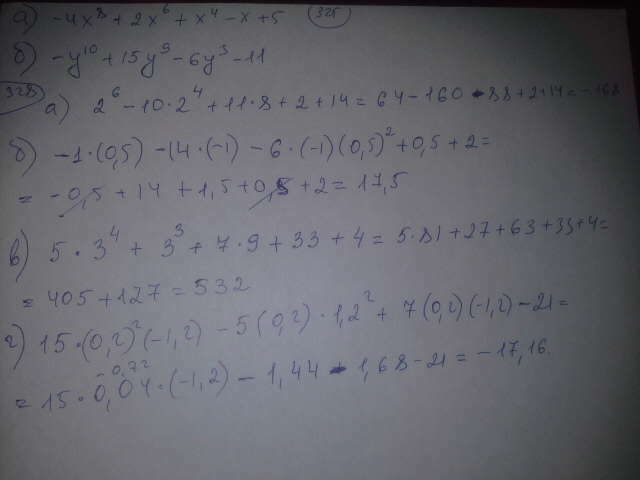 а) -4x⁸ + 2x⁶ + x⁴ - x + 5 325
б) -y¹⁰ + 15y⁹ - 6y³ - 11
328
а) 2⁶ - 10·2⁴ + 11·8 + 2 + 14 = 64 - 160 - 88 + 2 + 14 = -168
б) -1·(0,5) - 14·(-1) - 6·(-1)(0,5)² + 0,5 + 2 =
= -0,5 + 14 + 1,5 + 0,5 + 2 = 17,5
в) 5·3⁴ + 3³ + 7·9 + 33 + 4 = 5·81 + 27 + 63 + 33 + 4 =
= 405 + 127 = 532
г) 15·(0,2)²(-1,2) - 5(0,2)·1,2² + 7(0,2)(-1,2) - 21 =
-0,72
= 15·0,04·(-1,2) - 1,44 - 1,68 - 21 = -17,16.